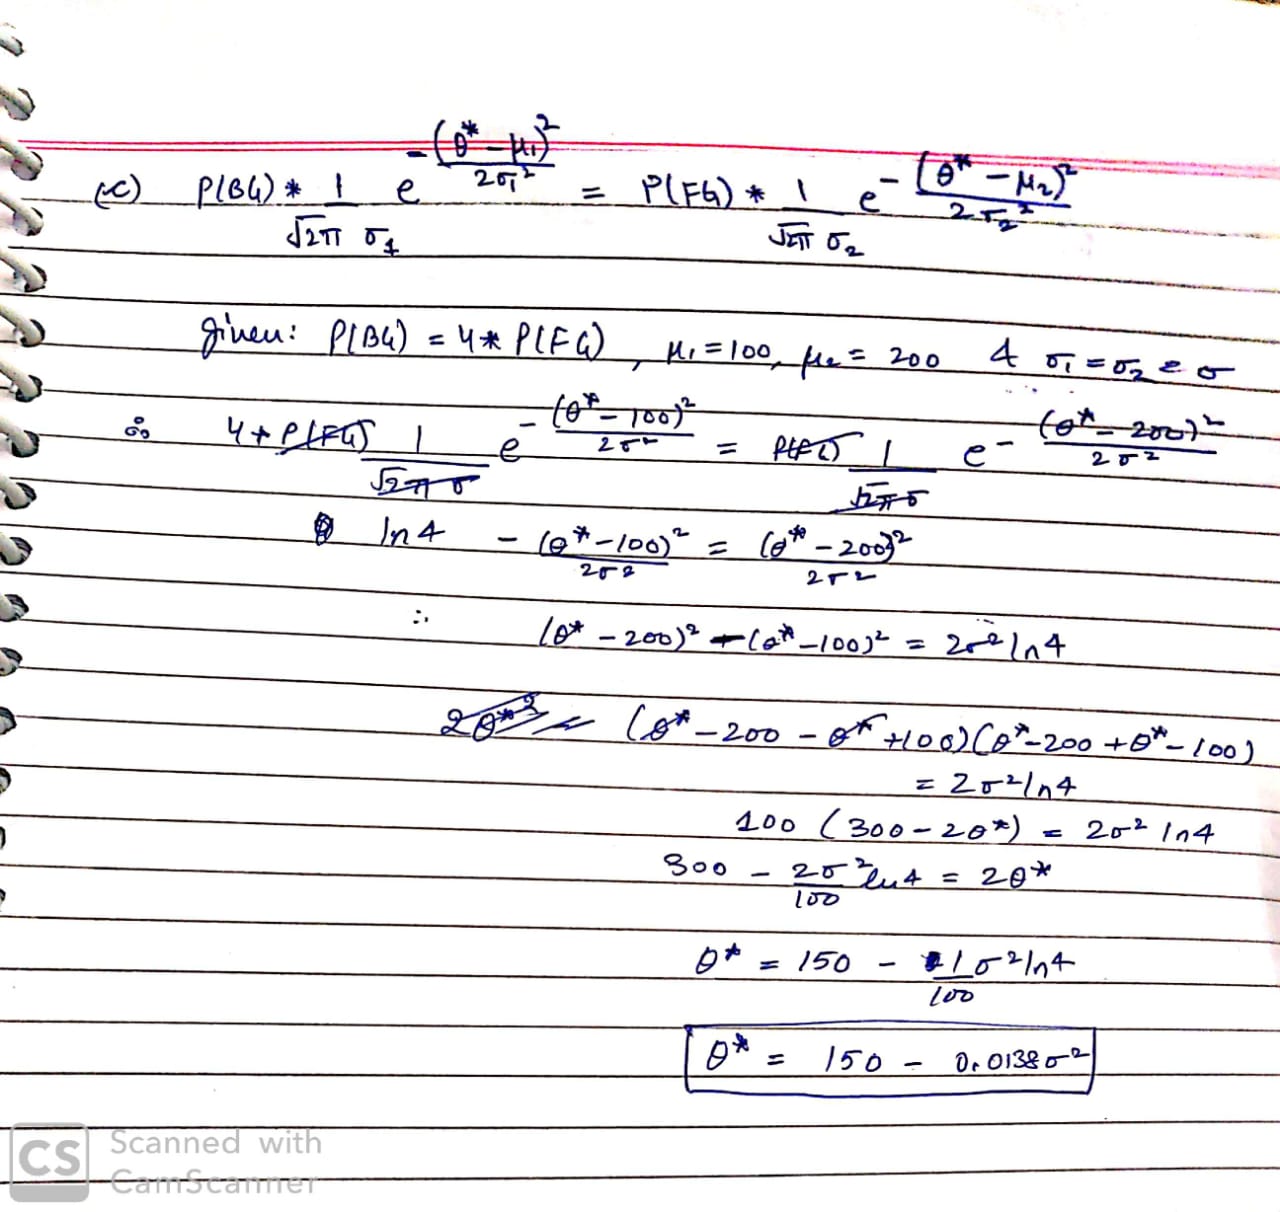 (c) P(BG) * 1/(√2π σ1) e^-(θ* - μ1)²/2σ1² = P(FG) * 1/(√2π σ2) e^-(θ* - μ2)²/2σ2²
given: P(BG) = 4 * P(FG), μ1 = 100, μ2 = 200 & σ1 = σ2 = σ
∴ 4 * P(FG) 1/(√2π σ) e^-(θ* - 100)²/2σ² = P(FG) 1/(√2π σ) e^-(θ* - 200)²/2σ²
ln 4 - (θ* - 100)²/2σ² = (θ* - 200)²/2σ²
∴ (θ* - 200)² - (θ* - 100)² = 2σ² ln 4
(θ* - 200 - θ* + 100)(θ* - 200 + θ* - 100)
= 2σ² ln 4
100 (300 - 2θ*) = 2σ² ln 4
300 - 2σ² ln 4/100 = 2θ*
θ* = 150 - 1/100 σ² ln 4
θ* = 150 - 0.0138 σ²
CS Scanned with
CamScanner